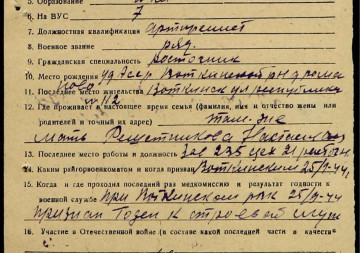 6. На ВУС 7
7. Должностная квалификация артиллерист
8. Военное звание ряд.
9. Гражданская специальность
10. Место рождения Уд Асср Воткинский р-н д
11. Последнее место жительства Воткинск ул республики
№ 112
12. Где проживает в настоящее время семья (фамилия, имя и отчество жены или
родителей и точный их адрес) там-же
Мать Решетникова
13. Последнее место работы и должность зав 235 цех 21
14. Каким райгорвоенкоматом и когда призван Воткинским 25/9-44
15. Когда и где проходил последний раз медкомиссию и результат годности к
военной службе при Воткинском рвк 25/9-44
признан Годен к строевой службе
16. Участие в Отечественной войне (в составе какой последней части в качестве